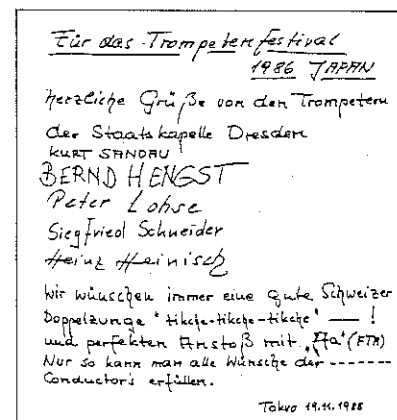 Für das Trompetenfestival
1986 JAPAN
herzliche Grüße von den Trompetern
der Staatskapelle Dresden
KURT SANDAU
BERND HENGST
Peter Lohse
Siegfried Schneider
Heinz Heinisch
Wir wünschen immer eine gute Schweizer
Doppelzunge "tikche-tikche-tikche" — !
und perfekten Anstoß mit "Fta" (FTA)
Nur so kann man alle Wünsche der -------
Conductor's erfüllen.
Tokyo 19.11.1988